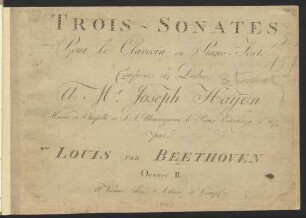 TROIS SONATES
Pour le Clavecin ou Piano-Forte
Composées et Dediées
A Mr. Joseph Haydn
Maitre de Chapelle de S. A. Monseigneur le Prince Esterhazy &c &c
par
LOUIS van BEETHOVEN
Oeuvre II.
A Vienne chez Artaria et Comp.